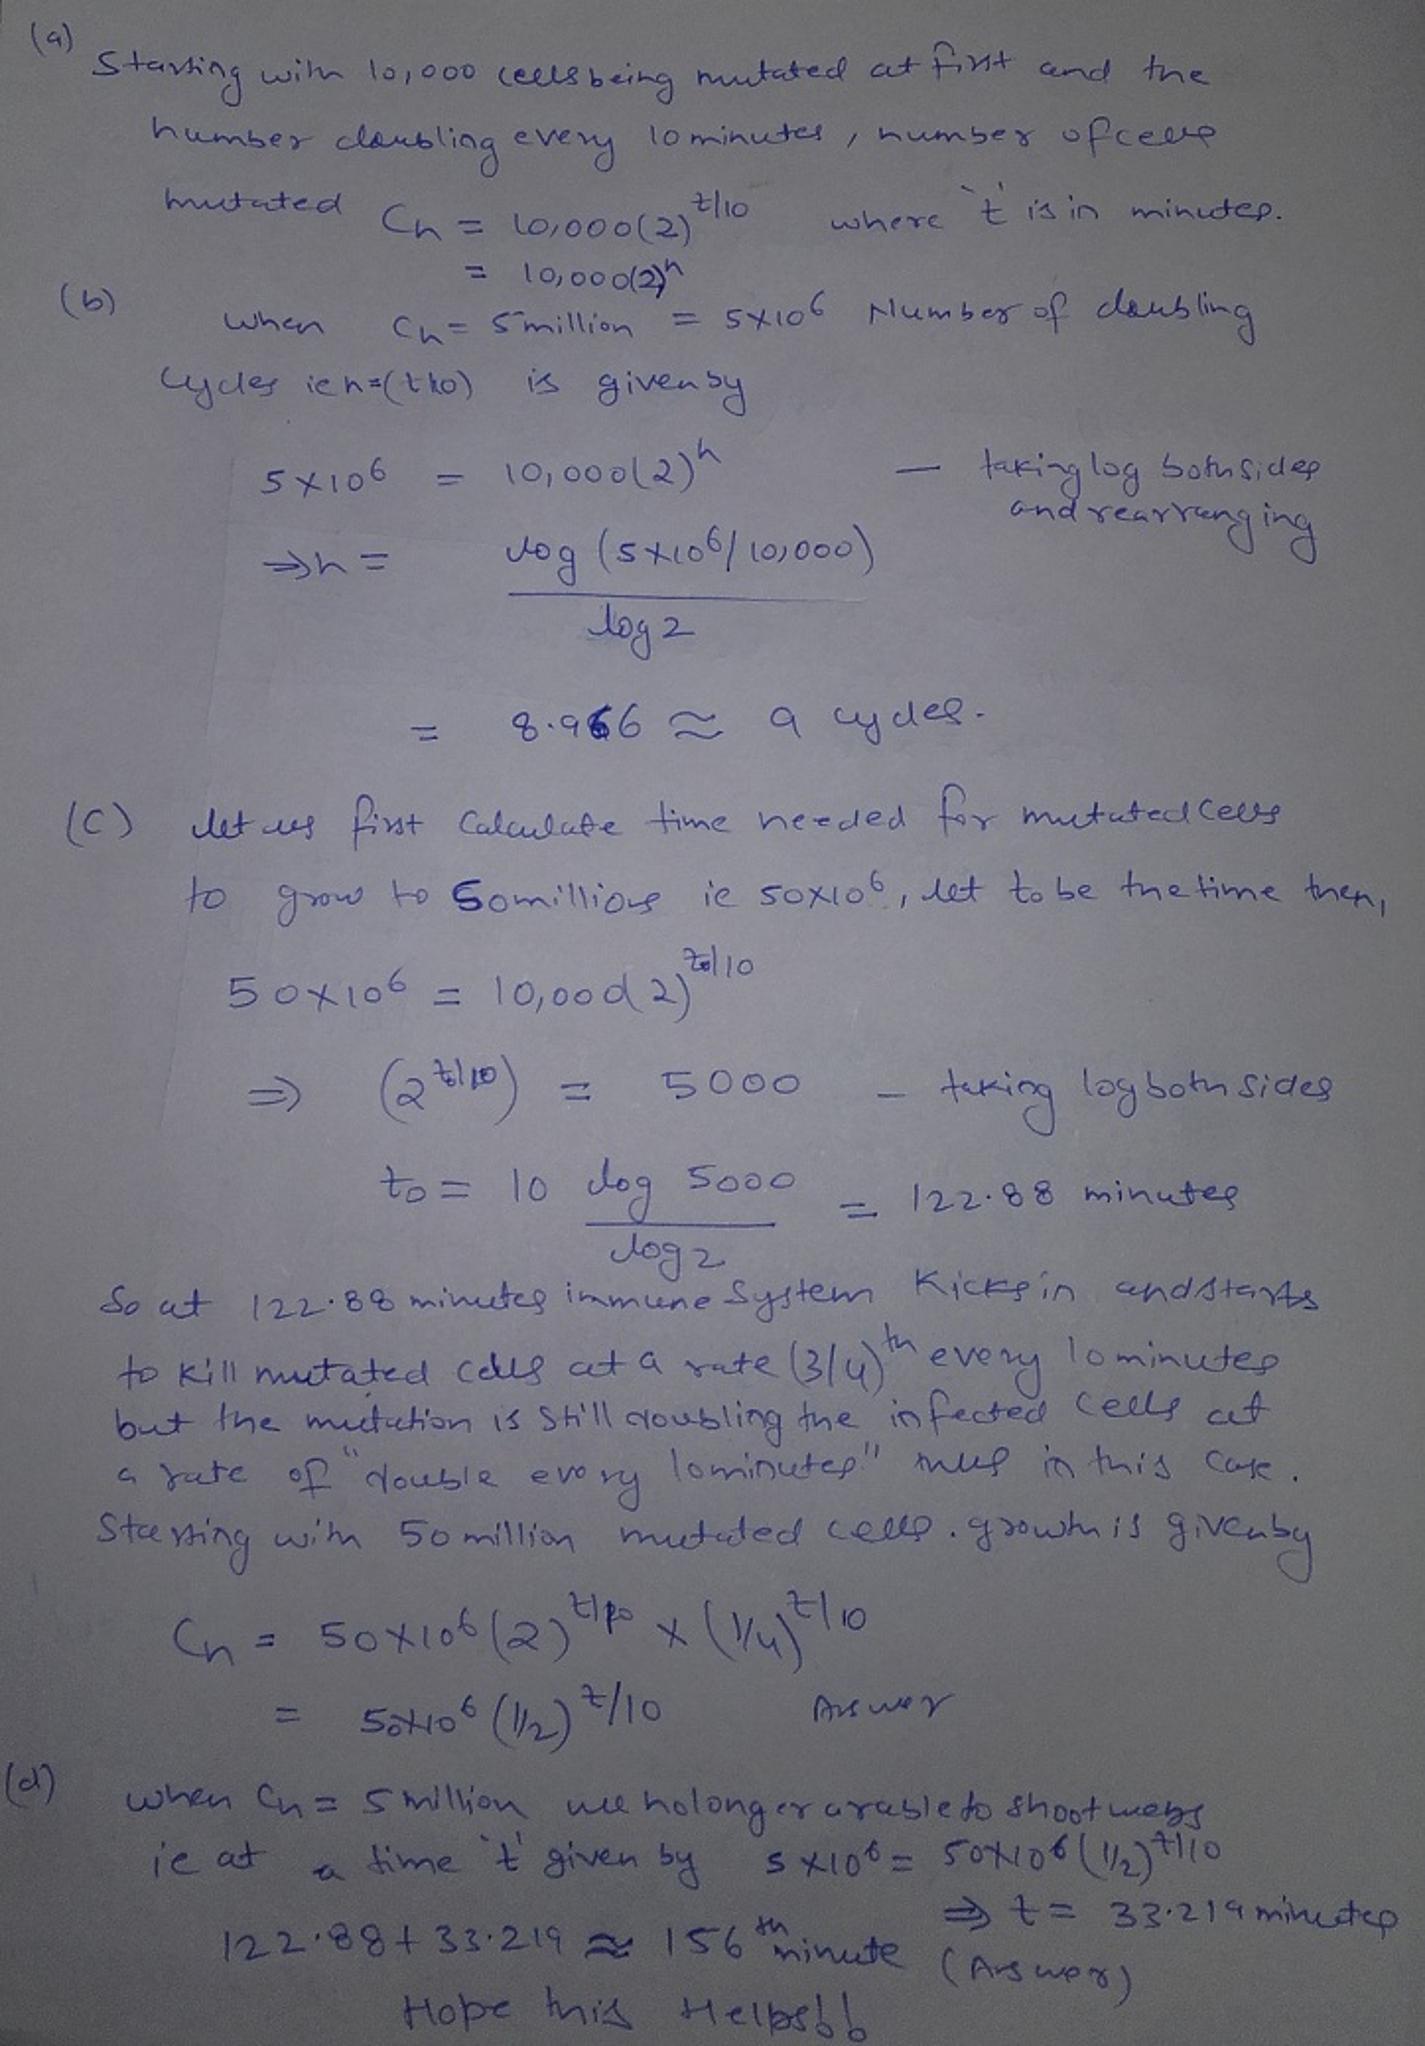 (a)
Starting with 10,000 cells being mutated at first and the
number doubling every 10 minutes, number of cells
mutated Cn = 10,000(2)^t/10 where 't' is in minutes.
= 10,000(2)^n
(b) when Cn = 5 million = 5×10^6 Number of doubling
cycles ie n=(t/10) is given by
5×10^6 = 10,000(2)^n — taking log both sides
and rearranging
⇒ n = log (5×10^6/10,000)
log 2
= 8.966 ≈ 9 cycles.
(C) let us first Calculate time needed for mutated cells
to grow to 50 millions ie 50×10^6, let to be the time then,
50×10^6 = 10,000(2)^to/10
⇒ (2^to/10) = 5000 – taking log both sides
to = 10 log 5000 = 122.88 minutes
log 2
So at 122.88 minutes immune System Kicks in and starts
to kill mutated cells at a rate (3/4)th every 10 minutes
but the mutation is still doubling the infected cells at
a rate of "double every 10 minutes" thus in this case.
Starting with 50 million mutated cells. growth is given by
Cn = 50×10^6 (2)^t/10 × (1/4)^t/10
= 50×10^6 (1/2)^t/10 Answer
(d) when Cn = 5 million we no longer are able to shoot webs
ie at a time 't' given by 5×10^6 = 50×10^6 (1/2)^t/10
⇒ t = 33.219 minutes
122.88 + 33.219 ≈ 156th minute (Answer)
Hope this Helps!!